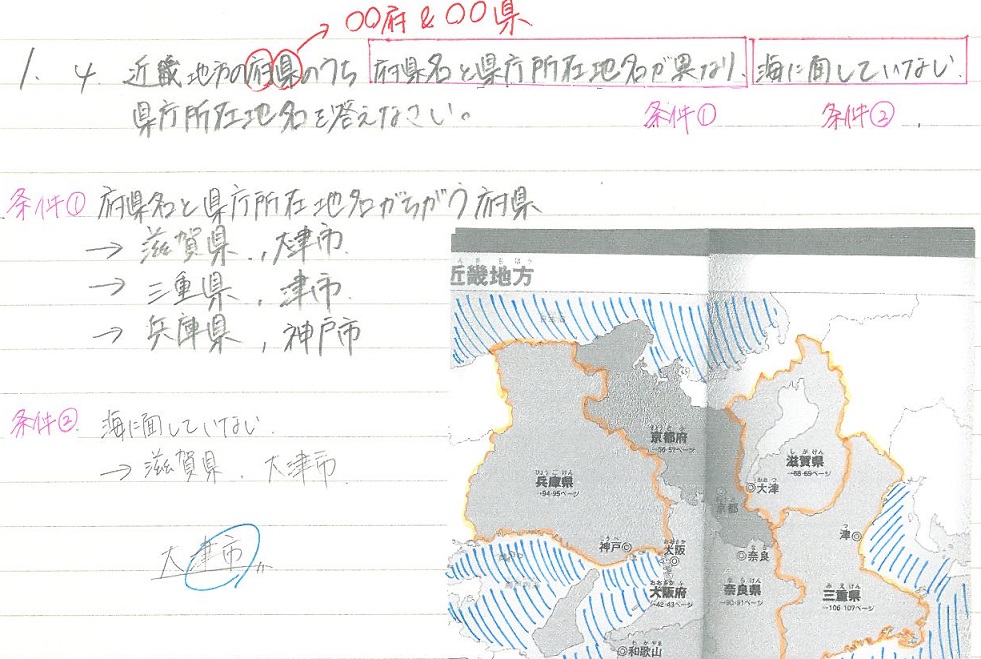 〇〇府 & 〇〇県
1. 4. 近畿地方の府県のうち 府県名と県庁所在地名が異なり、海に面していない
県庁所在地名を答えなさい。
条件① 条件②
条件① 府県名と県庁所在地名がちがう府県
→ 滋賀県 , 大津市
→ 三重県 , 津市
→ 兵庫県 , 神戸市
条件② 海に面していない
→ 滋賀県 . 大津市
大津市
近畿地方
京都府
→56・57ページ
しがけん
滋賀県
→68・69ページ
おおつ
大津
ひょうごけん
兵庫県
→94・95ページ
京都
こうべ
神戸
おおさか
大阪
なら
奈良
つ
津
おおさかふ
大阪府
→42・43ページ
ならけん
奈良県
→90・91ページ
みえけん
三重県
→106・107ページ
わかやま
和歌山